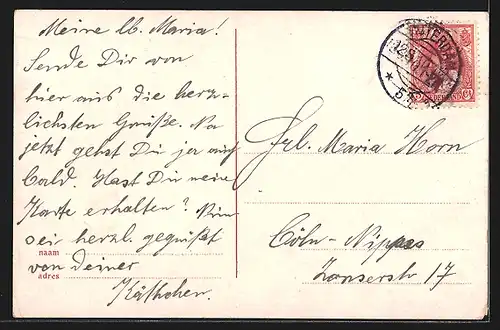 Meine lb. Maria!
Sende Dir von
hier aus die herz-
lichsten Grüße. Na
jetzt gehst Du ja auch
bald. Hast Du meine
Karte erhalten?
sei herzl. gegrüßt
von deiner
Käthchen.
naam
adres
Frl. Maria Horn
Cöln-Nippes
Xanserstr 17